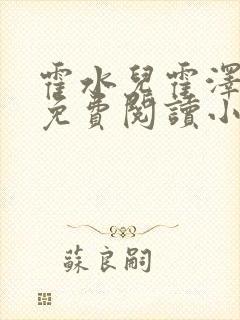 霍水兒霍澤
免費閱讀小
蘇良嗣